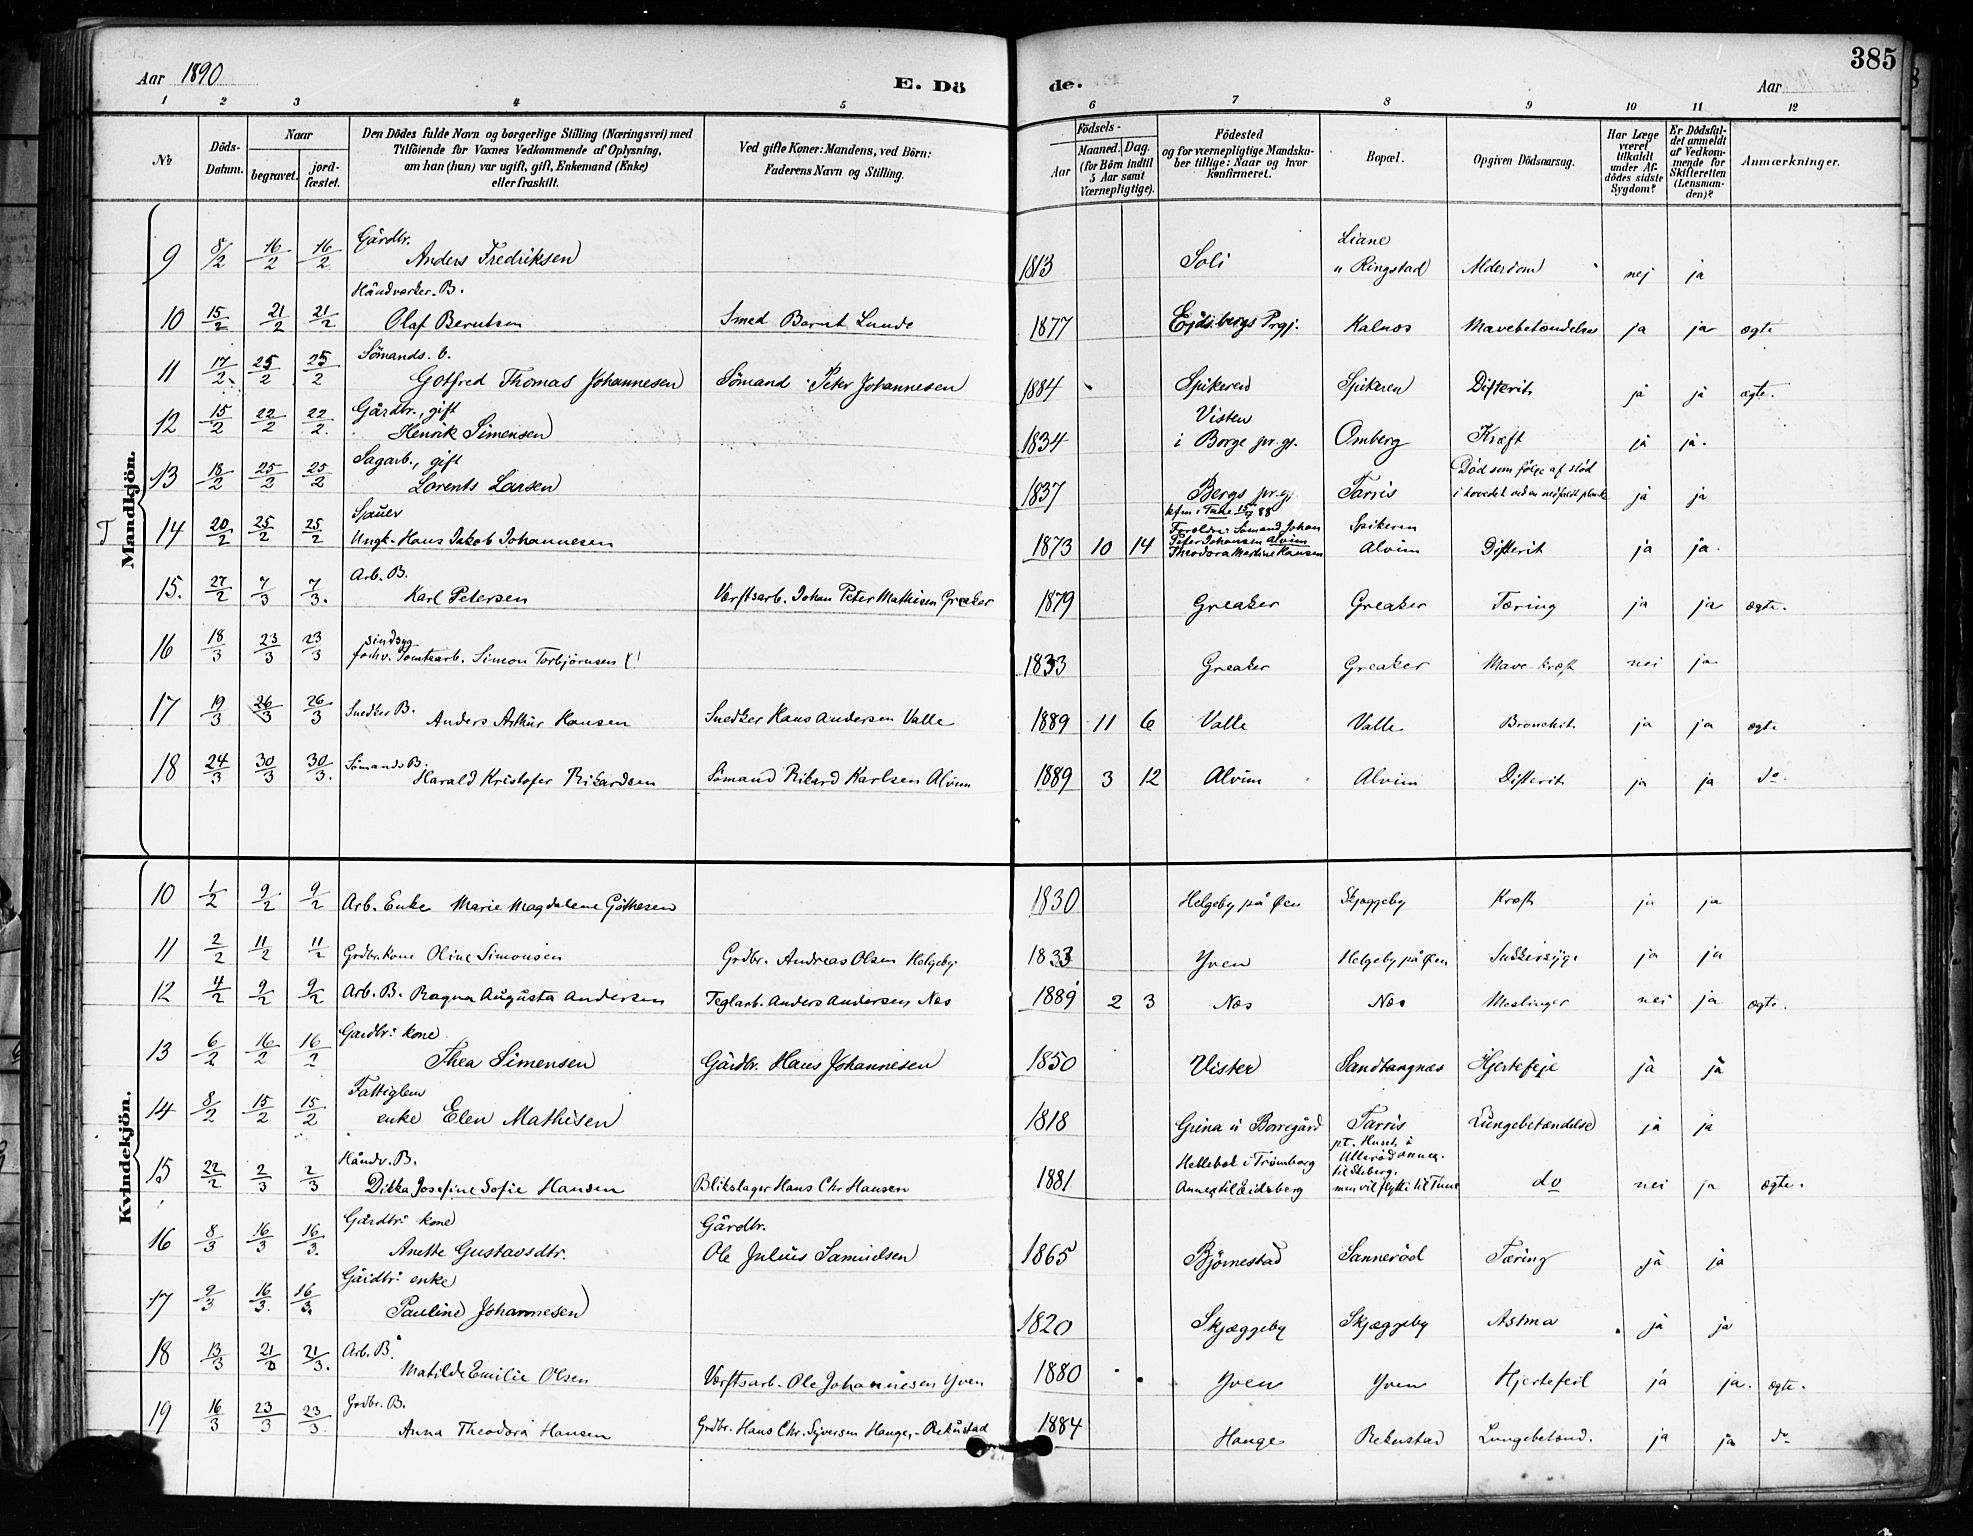 385
Aar 1890 E. Dö de. Aar
1 2 3 4 5 6 7 8 9 10 11 12
No
Döds-Datum.
Naar
begravet.
jordfæstet.
Den Dödes fulde Navn og borgerlige Stilling (Næringsvei) med
Tilföiende for Voxnes Vedkommende af Oplysning,
om han (hun) var ugift, gift, Enkemand (Enke)
eller fraskilt.
Ved gifte Koner: Mandens, ved Börn:
Faderens Navn og Stilling.
Födsels-
Aar
Maaned. Dag.
(for Börn indtil
5 Aar samt
Værnepligtige).
Födested
og for værnepligtige Mandskaber tillige: Naar og hvor
konfirmeret.
Bopæl.
Opgiven Dödsaarsag.
Har Læge
været
tilkaldt
under Afdödes sidste
Sygdom?
Er Dödsfaldet anmeldt
af Vedkommende for
Skifteretten
(Lensmanden)?
Anmærkninger.
Mandkjön.
9 8/2 16/2 16/2 Gårdbr. Anders Fredriksen 1813 Soli Liane u Ringstad Alderdom nej ja
10 15/2 21/2 21/2 Håndverker. B. Olaf Berntsen Smed Bernt Lunde 1877 Ejdsbergs Prgj. Kalnes Mavebetændelse ja ja ægte
11 17/2 25/2 25/2 Sömands. b. Gotfred Thomas Johannesen Sömand Peter Johannesen 1884 Spikeren Spikeren Difterit ja ja ægte.
12 15/2 22/2 22/2 Gårdbr., gift Henrik Simensen 1834 Visten i Borge pr.gj. Omberg Kræft ja ja.
13 18/2 25/2 25/2 Sagarb., gift Lorents Larsen 1837 Bergs pr.gj. Tarris Död som følge af stöd i hovedet ved en nedfaldt planke ja ja
T 14 20/2 25/2 25/2 Sjauer Ungk. Hans Jakob Johannesen 1873 10 14 kfm i Tune 88 Forældre: Sömand Johan Peter Johansen Alvim Theodora Martine Hansen Spikeren Alvim Difterit ja ja.
15. 27/2 7/3 7/3. Arb. B. Karl Petersen Værftsarb. Johan Peter Mathisen Greaker 1879 Greaker Greaker Tæring ja ja ægte.
16 18/3 23/3 23/3 sindsyg forhv. Tomtearb. Simon Torbjörnsen 1833 Greaker Greaker Mave-kræft nei ja
17 19/3 26/3 26/3 Snedker B. Anders Arthur Hansen Snedker Hans Andersen Valle 1889 11 6 Valle Valle Bronchit ja ja ægte
18 24/3 30/3 30/3. Sömands B. Harald Kristofer Rikardsen Sömand Rikard Karlsen Alvim 1889 3 12 Alvim Alvim Difterit ja ja do.
Kvindekjön.
10 1/2 9/2 9/2 Arb. Enke Marie Magdalene Göthesen 1830 Helgeby på Øen Skjeggeby Kræft ja ja
11 2/2 11/2 11/2 Grdbr.kone Oline Simonsen Grdbr. Andreas Olsen Helgeby. 1833 Yven Helgeby på Øen Sukkersyge ja ja
12 4/2 9/2 9/2 Arb. B. Ragna Augusta Andersen Teglarb. Anders Andersen Nes 1889 2 3 Nes Nes Meslinger nei ja ægte.
13 6/2 16/2 16/2 Gardbr: kone Thea Simensen Gårdbr. Hans Johannesen 1850 Vister Sandtangnæs Hjertefeje ja ja
14 8/2 15/2 15/2 Fattiglem enke Elen Mathisen 1818 Grina u Borregård Tarris Lungebetændelse ja ja
15 22/2 2/3 2/3 Håndv. B. Dikka Josefine Sofie Hansen Blikslager Hans Chr. Hansen 1881 Hellebek i Trömborg Annex til Eidsberg pt. Huset å Ullerød annex. til Skeberg, men vil flytte til Tune do nei ja ægte.
16 8/3 16/3 16/3. Gårdbr: kone Anette Gustavsdtr. Gårdbr. Ole Julius Samuelsen 1865 Björnestad Sannerød Tæring ja ja
17 9/3 16/3. 16/3. Gårdbr: enke Pauline Johannesen 1820 Skjæggeby Skjæggeby Astma ja ja
18 13/3 21/3 21/3. Arb. B. Matilde Emilie Olsen Værftsarb. Ole Johannesen Yven 1880 Yven Yven Hjertefeil ja ja. ægte.
19 16/3 23/3 23/3 Grdbr. B. Anna Theodora Hansen Grdbr. Hans Chr. Syversen Hauge, Rekustad 1884 Hauge Rekustad Lungebetænd. ja ja do